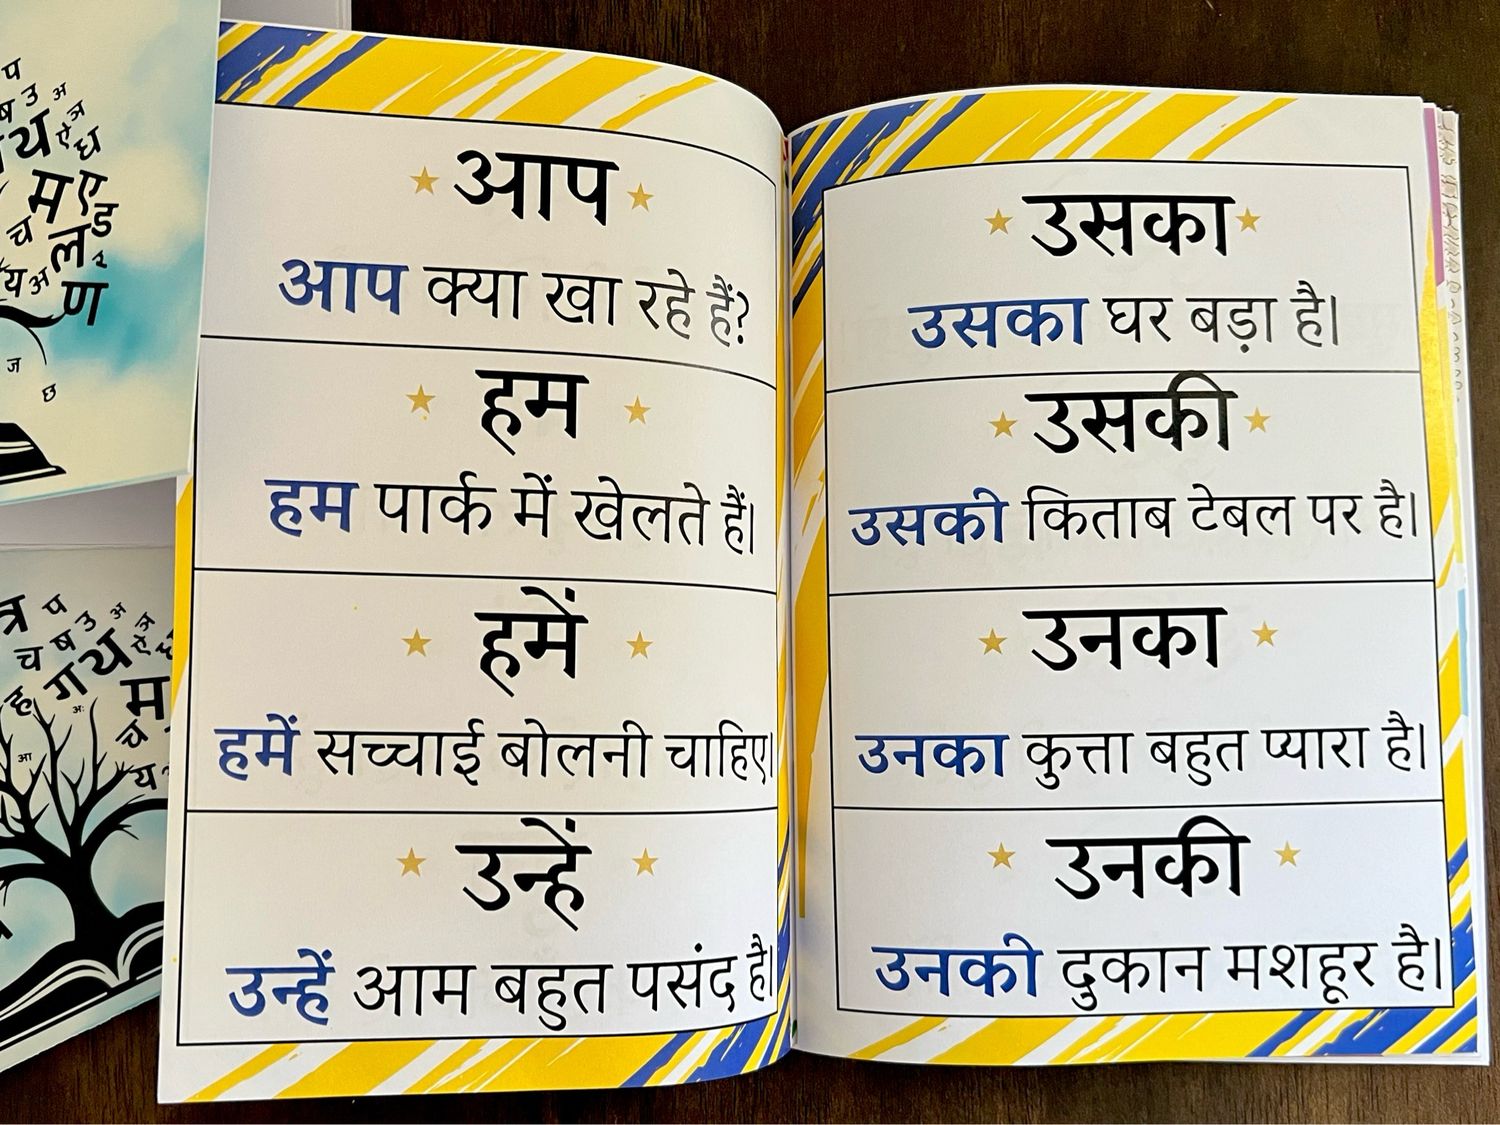 आप
आप क्या खा रहे हैं?
हम
हम पार्क में खेलते हैं।
हमें
हमें सच्चाई बोलनी चाहिए।
उन्हें
उन्हें आम बहुत पसंद है।
उसका
उसका घर बड़ा है।
उसकी
उसकी किताब टेबल पर है।
उनका
उनका कुत्ता बहुत प्यारा है।
उनकी
उनकी दुकान मशहूर है।
प
ष उ अ
थ ऐ ध
म ए
च ल ड
य अ ण
ज
छ
त्र प
च ष उ अ
ह ग थ ऐ
अः म
आ च
य